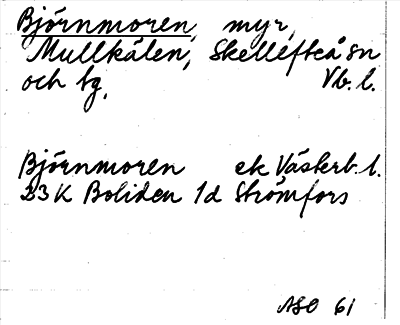 Björnmoren, myr,
Mullkälen, Skellefteå sn
och tg. Vb. l.
Björnmoren ek Västerb. l.
23 K Boliden 1d Strömfors
ASO 61